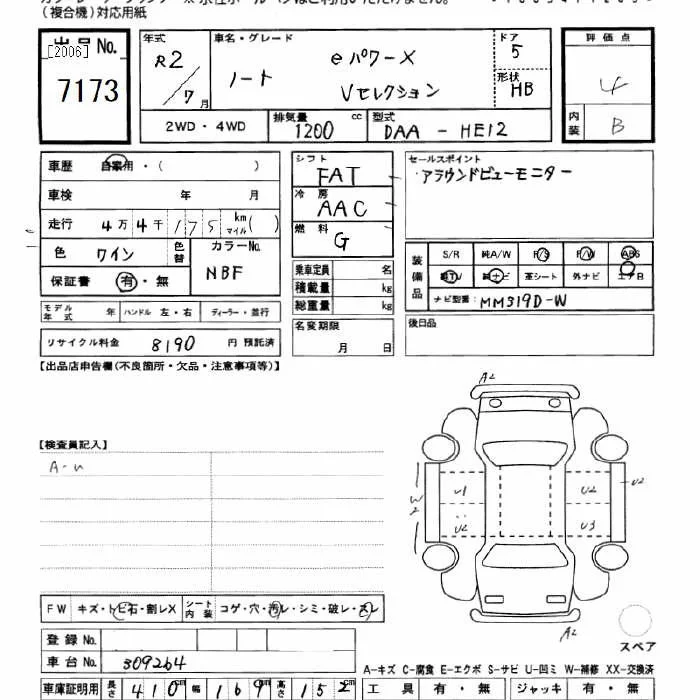 (複合機)対応用紙
出品No.
[2006]
7173
年式
R2/7月
車名・グレード
ノート
eパワーX
Vセレクション
ドア
5
形状
HB
2WD・4WD
排気量
1200cc
型式
DAA-HE12
評価点
4
内装
B
車歴 自家用・( )
車検 年 月
走行 4万4千175 km マイル( )
色 ワイン
色替
カラーNo.
NBF
保証書 有・無
モデル年式 年 ハンドル 左・右 ディーラー・並行
リサイクル料金 8190 円 預託済
シフト
FAT
冷房
AAC
燃料
G
乗車定員 名
積載量 kg
総重量 kg
名変期限
月 日
セールスポイント
アラウンドビューモニター
装備品
S/R 純A/W P/S P/W ABS
純TV 純ナビ 革シート 外ナビ エアB
ナビ型番: MM319D-W
後日品
【出品店申告欄(不良箇所・欠品・注意事項等)】
【検査員記入】
A-u
A2
W2
U1
U2
U2
U2
U3
A2
スペア
FW キズ・トビ石・割レX
シート内装 コゲ・穴・汚レ・シミ・破レ・スレ
登録No.
車台No. 309264
A-キズ C-腐食 E-エクボ S-サビ U-凹ミ W-補修 XX-交換済
車庫証明用 長さ 410cm 幅 169cm 高さ 152cm
工具 有・無 ジャッキ 有・無